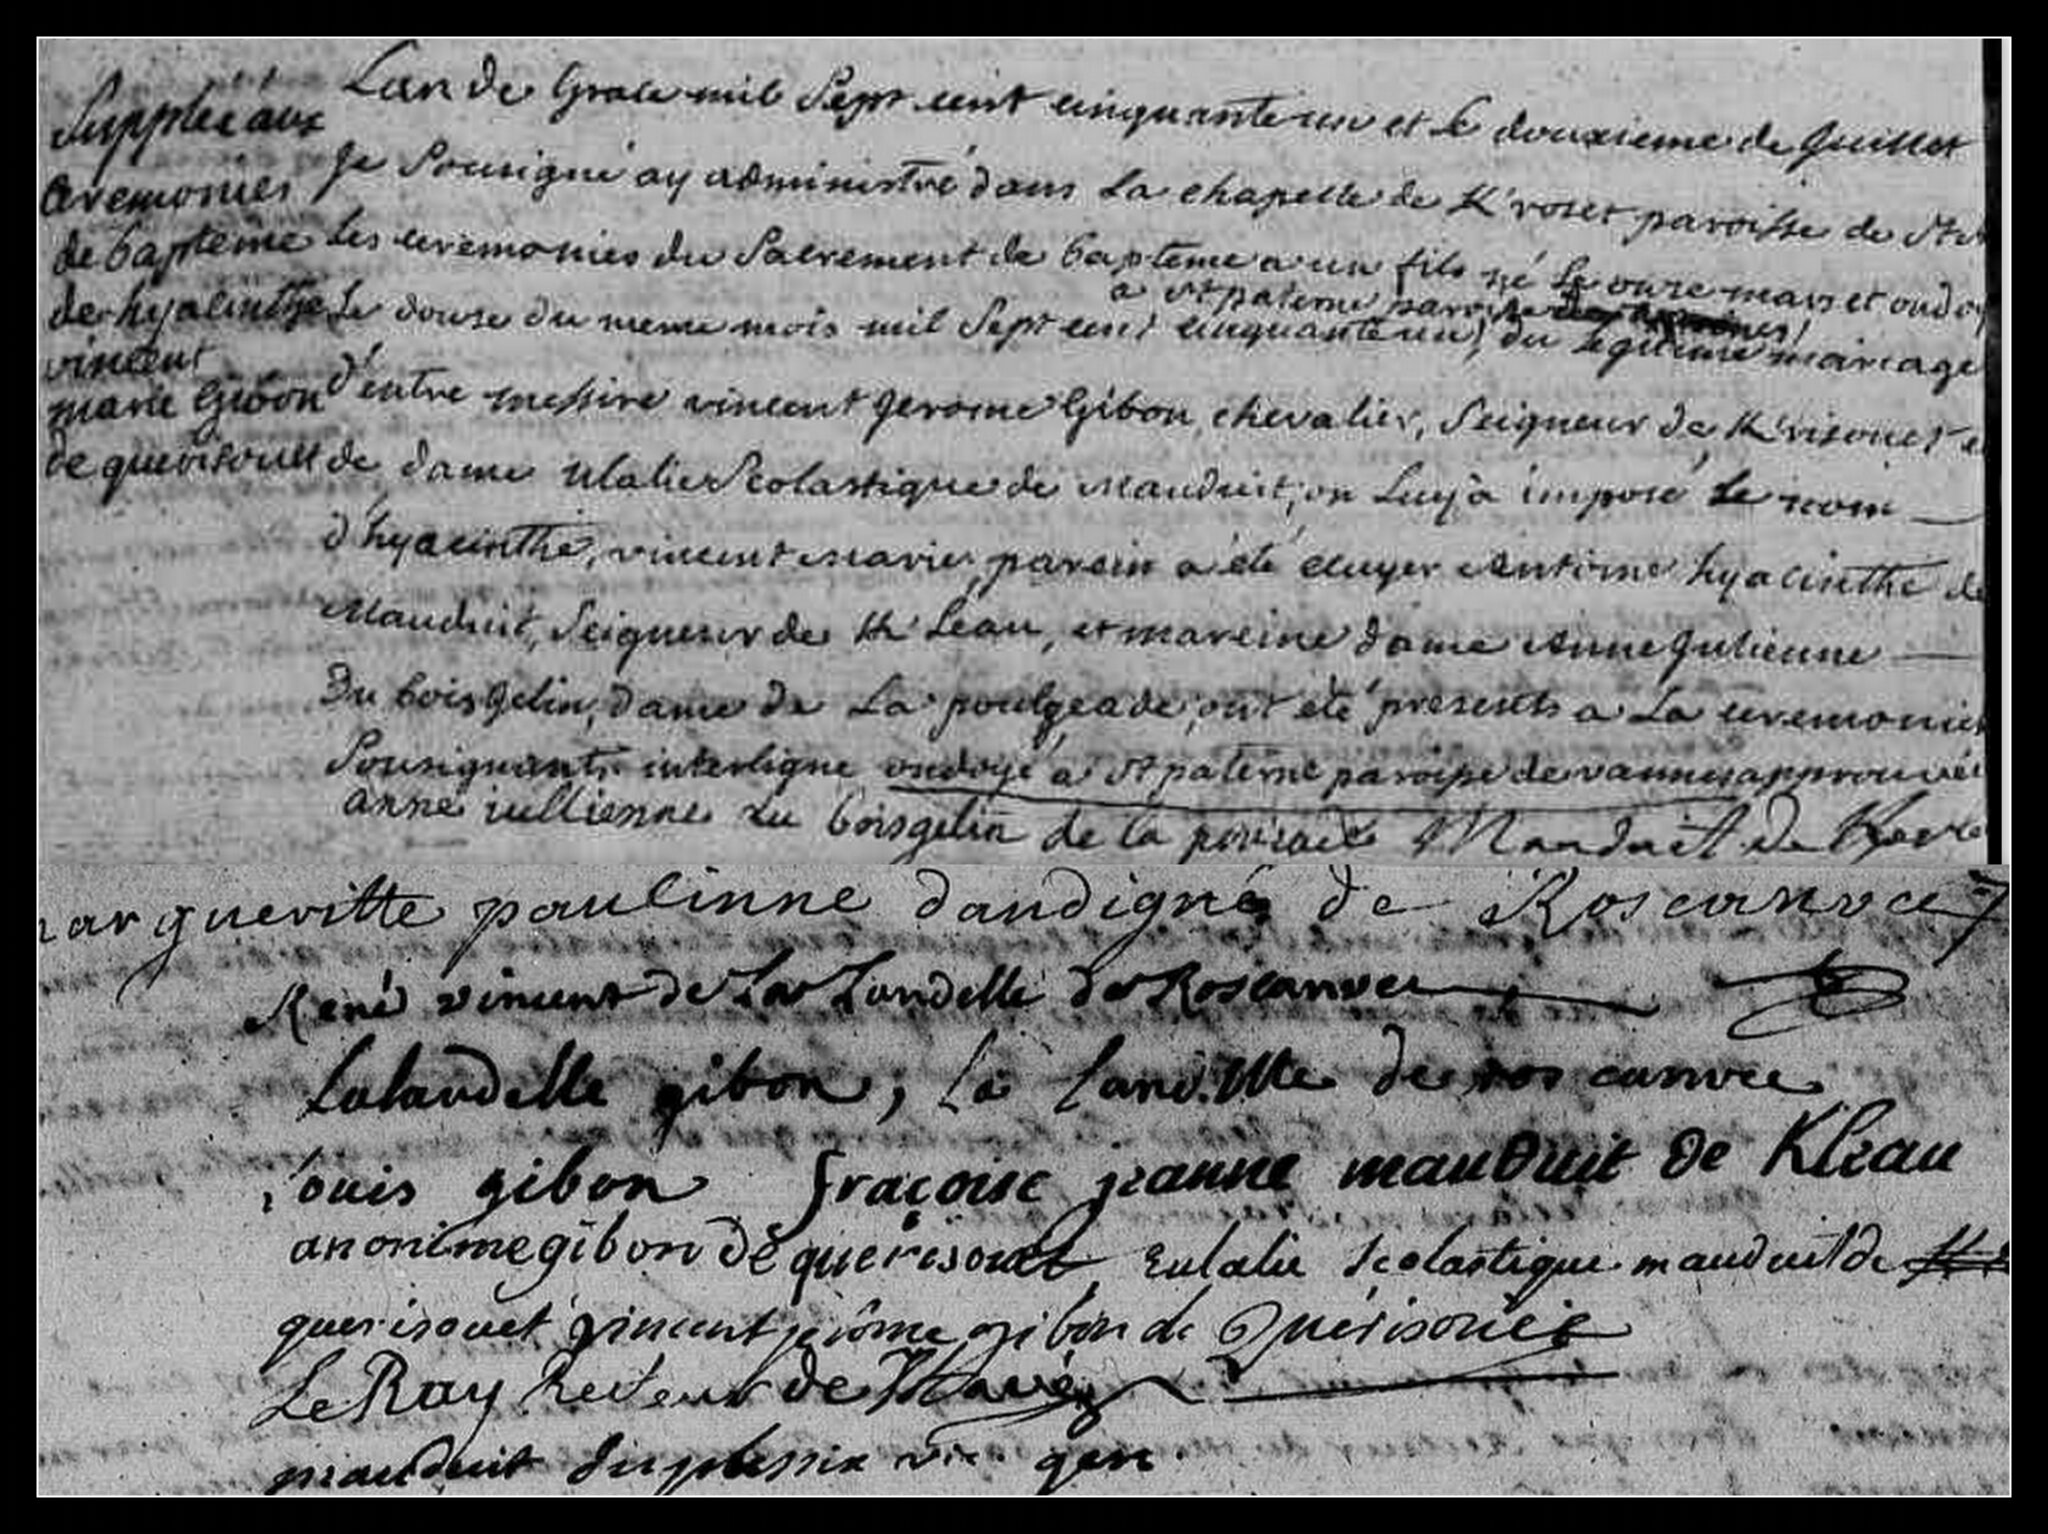 Supplée aux
Ceremonies
de bapteme
de hyacinthe
vincent
marie Gibon
de querisouet
Lan de Grace mil Sept cent cinquante un et le douxieme de Juillet
Je Sousigné ay administré dans La chapelle de K roset paroisse de
Les ceremonies du Sacrement de bapteme a un fils né Le onze mars et ondoyé
a St paterne paroisse
Le douse du meme mois mil Sept cent cinquante un, du Legitime mariage
d'entre messire vincent Jerome Gibon chevalier, Seigneur de K risouet et
de dame Ulalie Scolastique de Mauduit, on Luy a imposé Le nom
d'hyacinthe, vincent Marie, parein a été ecuyer Antoine hyacinthe de
Mauduit, Seigneur de K Leau, et mareine dame Anne Julienne
Du boisgelin, dame de La poulgeade, ont été presents a La ceremonie
Sousignants interligne ondoyé a St paterne paroisse de vannes approuvé
anne jullienne du boisgelin de la Mauduit de
margueritte paulinne dandigné de Roscanvec
René vincent de La Landelle de Roscanvec
Lalandelle gibon, La Landelle de ros canvec
Louis gibon fraçoise jeanne mauduit de Kleau
anonime gibon de querisouet Eulalie scolastique mauduit de
querisouet vincent jerôme gibon de Quérisouët
Le Ray Recteur de
mauduit duplessix vic. gen.